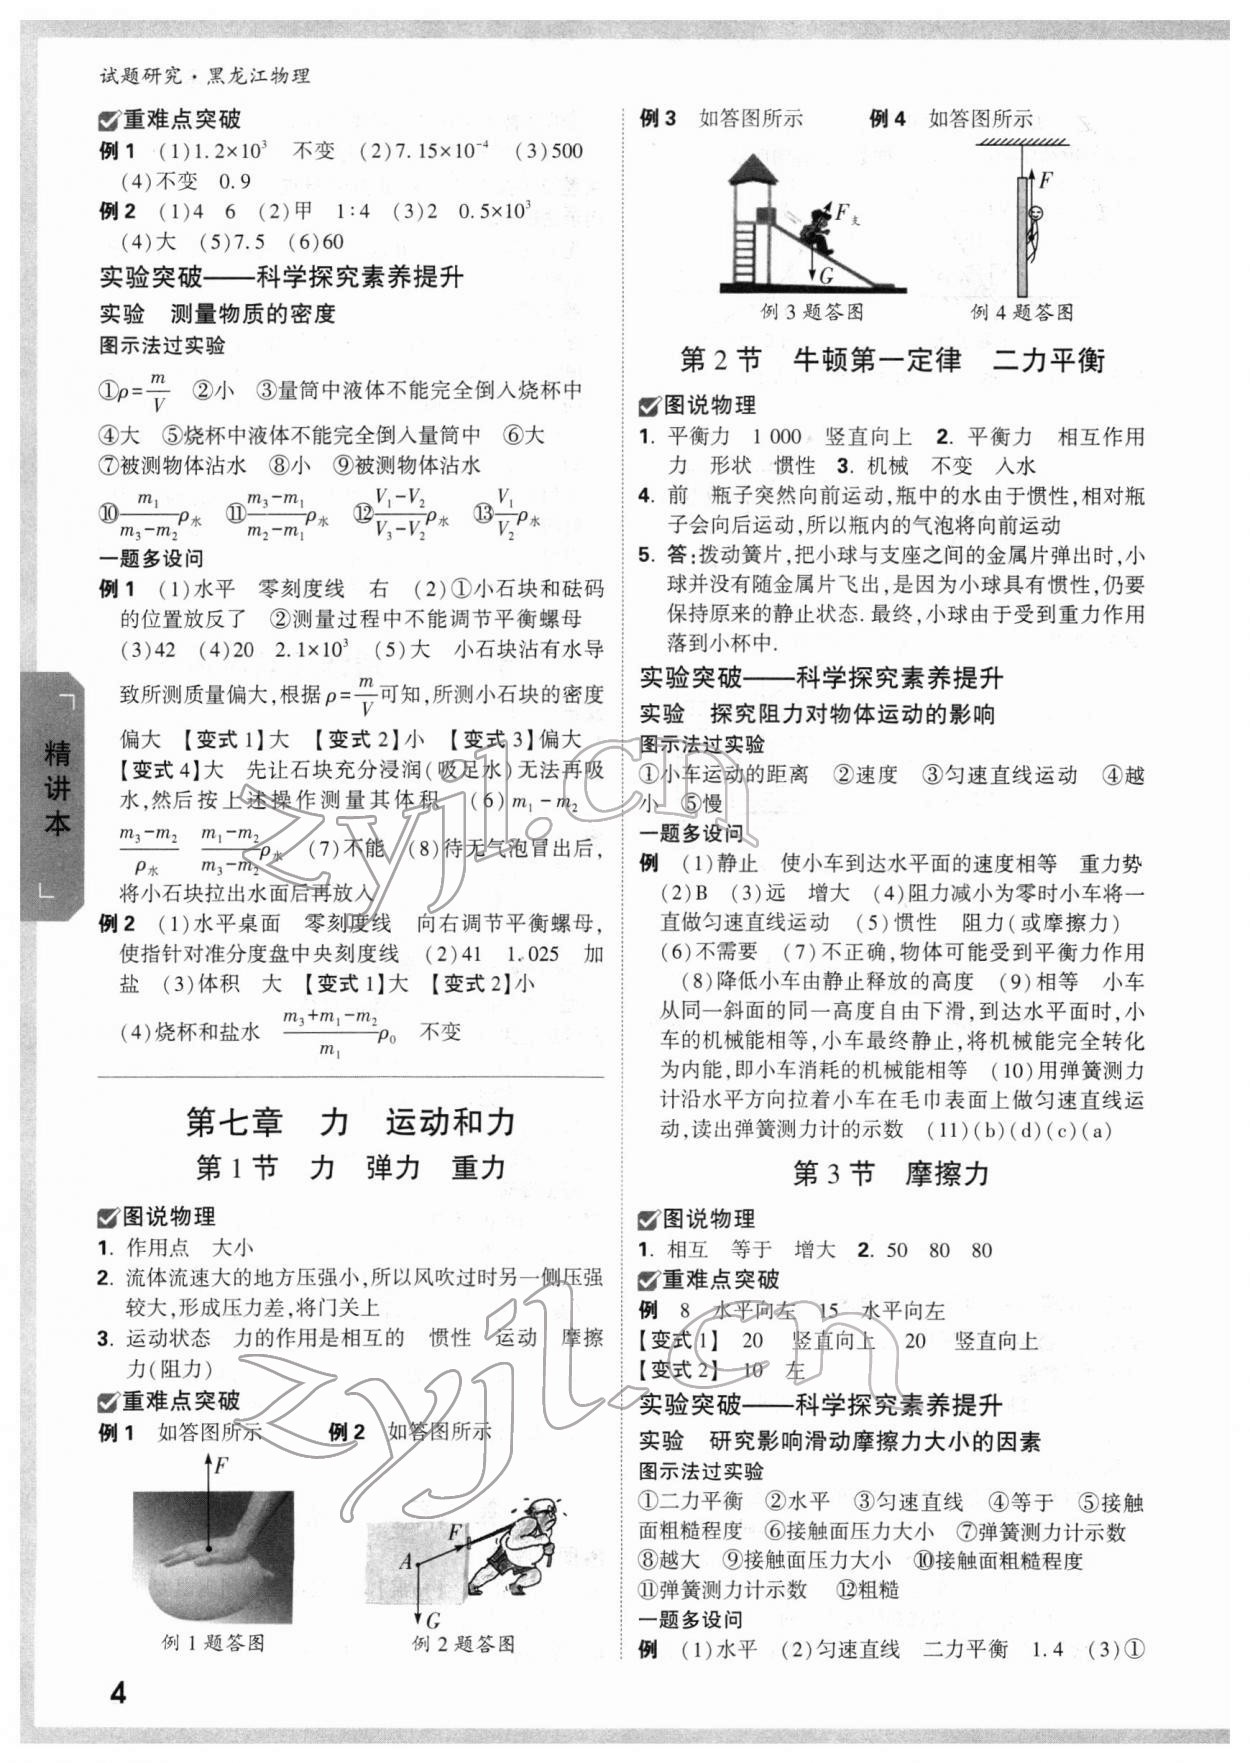 试题研究·黑龙江物理
重难点突破
例1 (1)1.2×10³ 不变 (2)7.15×10⁻⁴ (3)500
(4)不变 0.9
例2 (1)4 6 (2)甲 1:4 (3)2 0.5×10³
(4)大 (5)7.5 (6)60
实验突破——科学探究素养提升
实验 测量物质的密度
图示法过实验
①ρ=m/V ②小 ③量筒中液体不能完全倒入烧杯中
④大 ⑤烧杯中液体不能完全倒入量筒中 ⑥大
⑦被测物体沾水 ⑧小 ⑨被测物体沾水
⑩m₁/(m₃-m₂)ρ水 ⑪(m₃-m₁)/(m₂-m₁)ρ水 ⑫(V₁-V₂)/(V₃-V₂)ρ水 ⑬V₁/V₂ρ水
一题多设问
例1 (1)水平 零刻度线 右 (2)①小石块和砝码
的位置放反了 ②测量过程中不能调节平衡螺母
(3)42 (4)20 2.1×10³ (5)大 小石块沾有水导
致所测质量偏大,根据ρ=m/V可知,所测小石块的密度
偏大 【变式1】大 【变式2】小 【变式3】偏大
【变式4】大 先让石块充分浸润(吸足水)无法再吸
水,然后按上述操作测量其体积 (6)m₁-m₂
(m₃-m₂)/ρ水 (m₁-m₂)/(m₃-m₂)ρ水 (7)不能 (8)待无气泡冒出后,
将小石块拉出水面后再放入
例2 (1)水平桌面 零刻度线 向右调节平衡螺母,
使指针对准分度盘中央刻度线 (2)41 1.025 加
盐 (3)体积 大 【变式1】大 【变式2】小
(4)烧杯和盐水 (m₃+m₁-m₂)/m₁ρ₀ 不变
第七章 力 运动和力
第1节 力 弹力 重力
图说物理
1. 作用点 大小
2. 流体流速大的地方压强小,所以风吹过时另一侧压强
较大,形成压力差,将门关上
3. 运动状态 力的作用是相互的 惯性 运动 摩擦
力(阻力)
重难点突破
例1 如答图所示 例2 如答图所示
F
F
A
G
例1题答图 例2题答图
4
精讲本
例3 如答图所示 例4 如答图所示
F支
G
F
例3题答图 例4题答图
第2节 牛顿第一定律 二力平衡
图说物理
1. 平衡力 1 000 竖直向上 2. 平衡力 相互作用
力 形状 惯性 3. 机械 不变 入水
4. 前 瓶子突然向前运动,瓶中的水由于惯性,相对瓶
子会向后运动,所以瓶内的气泡将向前运动
5. 答:拨动簧片,把小球与支座之间的金属片弹出时,小
球并没有随金属片飞出,是因为小球具有惯性,仍要
保持原来的静止状态.最终,小球由于受到重力作用
落到小杯中.
实验突破——科学探究素养提升
实验 探究阻力对物体运动的影响
图示法过实验
①小车运动的距离 ②速度 ③匀速直线运动 ④越
小 ⑤慢
一题多设问
例 (1)静止 使小车到达水平面的速度相等 重力势
(2)B (3)远 增大 (4)阻力减小为零时小车将一
直做匀速直线运动 (5)惯性 阻力(或摩擦力)
(6)不需要 (7)不正确,物体可能受到平衡力作用
(8)降低小车由静止释放的高度 (9)相等 小车
从同一斜面的同一高度自由下滑,到达水平面时,小
车的机械能相等,小车最终静止,将机械能完全转化
为内能,即小车消耗的机械能相等 (10)用弹簧测力
计沿水平方向拉着小车在毛巾表面上做匀速直线运
动,读出弹簧测力计的示数 (11)(b)(d)(c)(a)
第3节 摩擦力
图说物理
1. 相互 等于 增大 2. 50 80 80
重难点突破
例 8 水平向左 15 水平向左
【变式1】 20 竖直向上 20 竖直向上
【变式2】 10 左
实验突破——科学探究素养提升
实验 研究影响滑动摩擦力大小的因素
图示法过实验
①二力平衡 ②水平 ③匀速直线 ④等于 ⑤接触
面粗糙程度 ⑥接触面压力大小 ⑦弹簧测力计示数
⑧越大 ⑨接触面压力大小 ⑩接触面粗糙程度
⑪弹簧测力计示数 ⑫粗糙
一题多设问
例 (1)水平 (2)匀速直线 二力平衡 1.4 (3)①
zyjl.cn
zyjl.cn